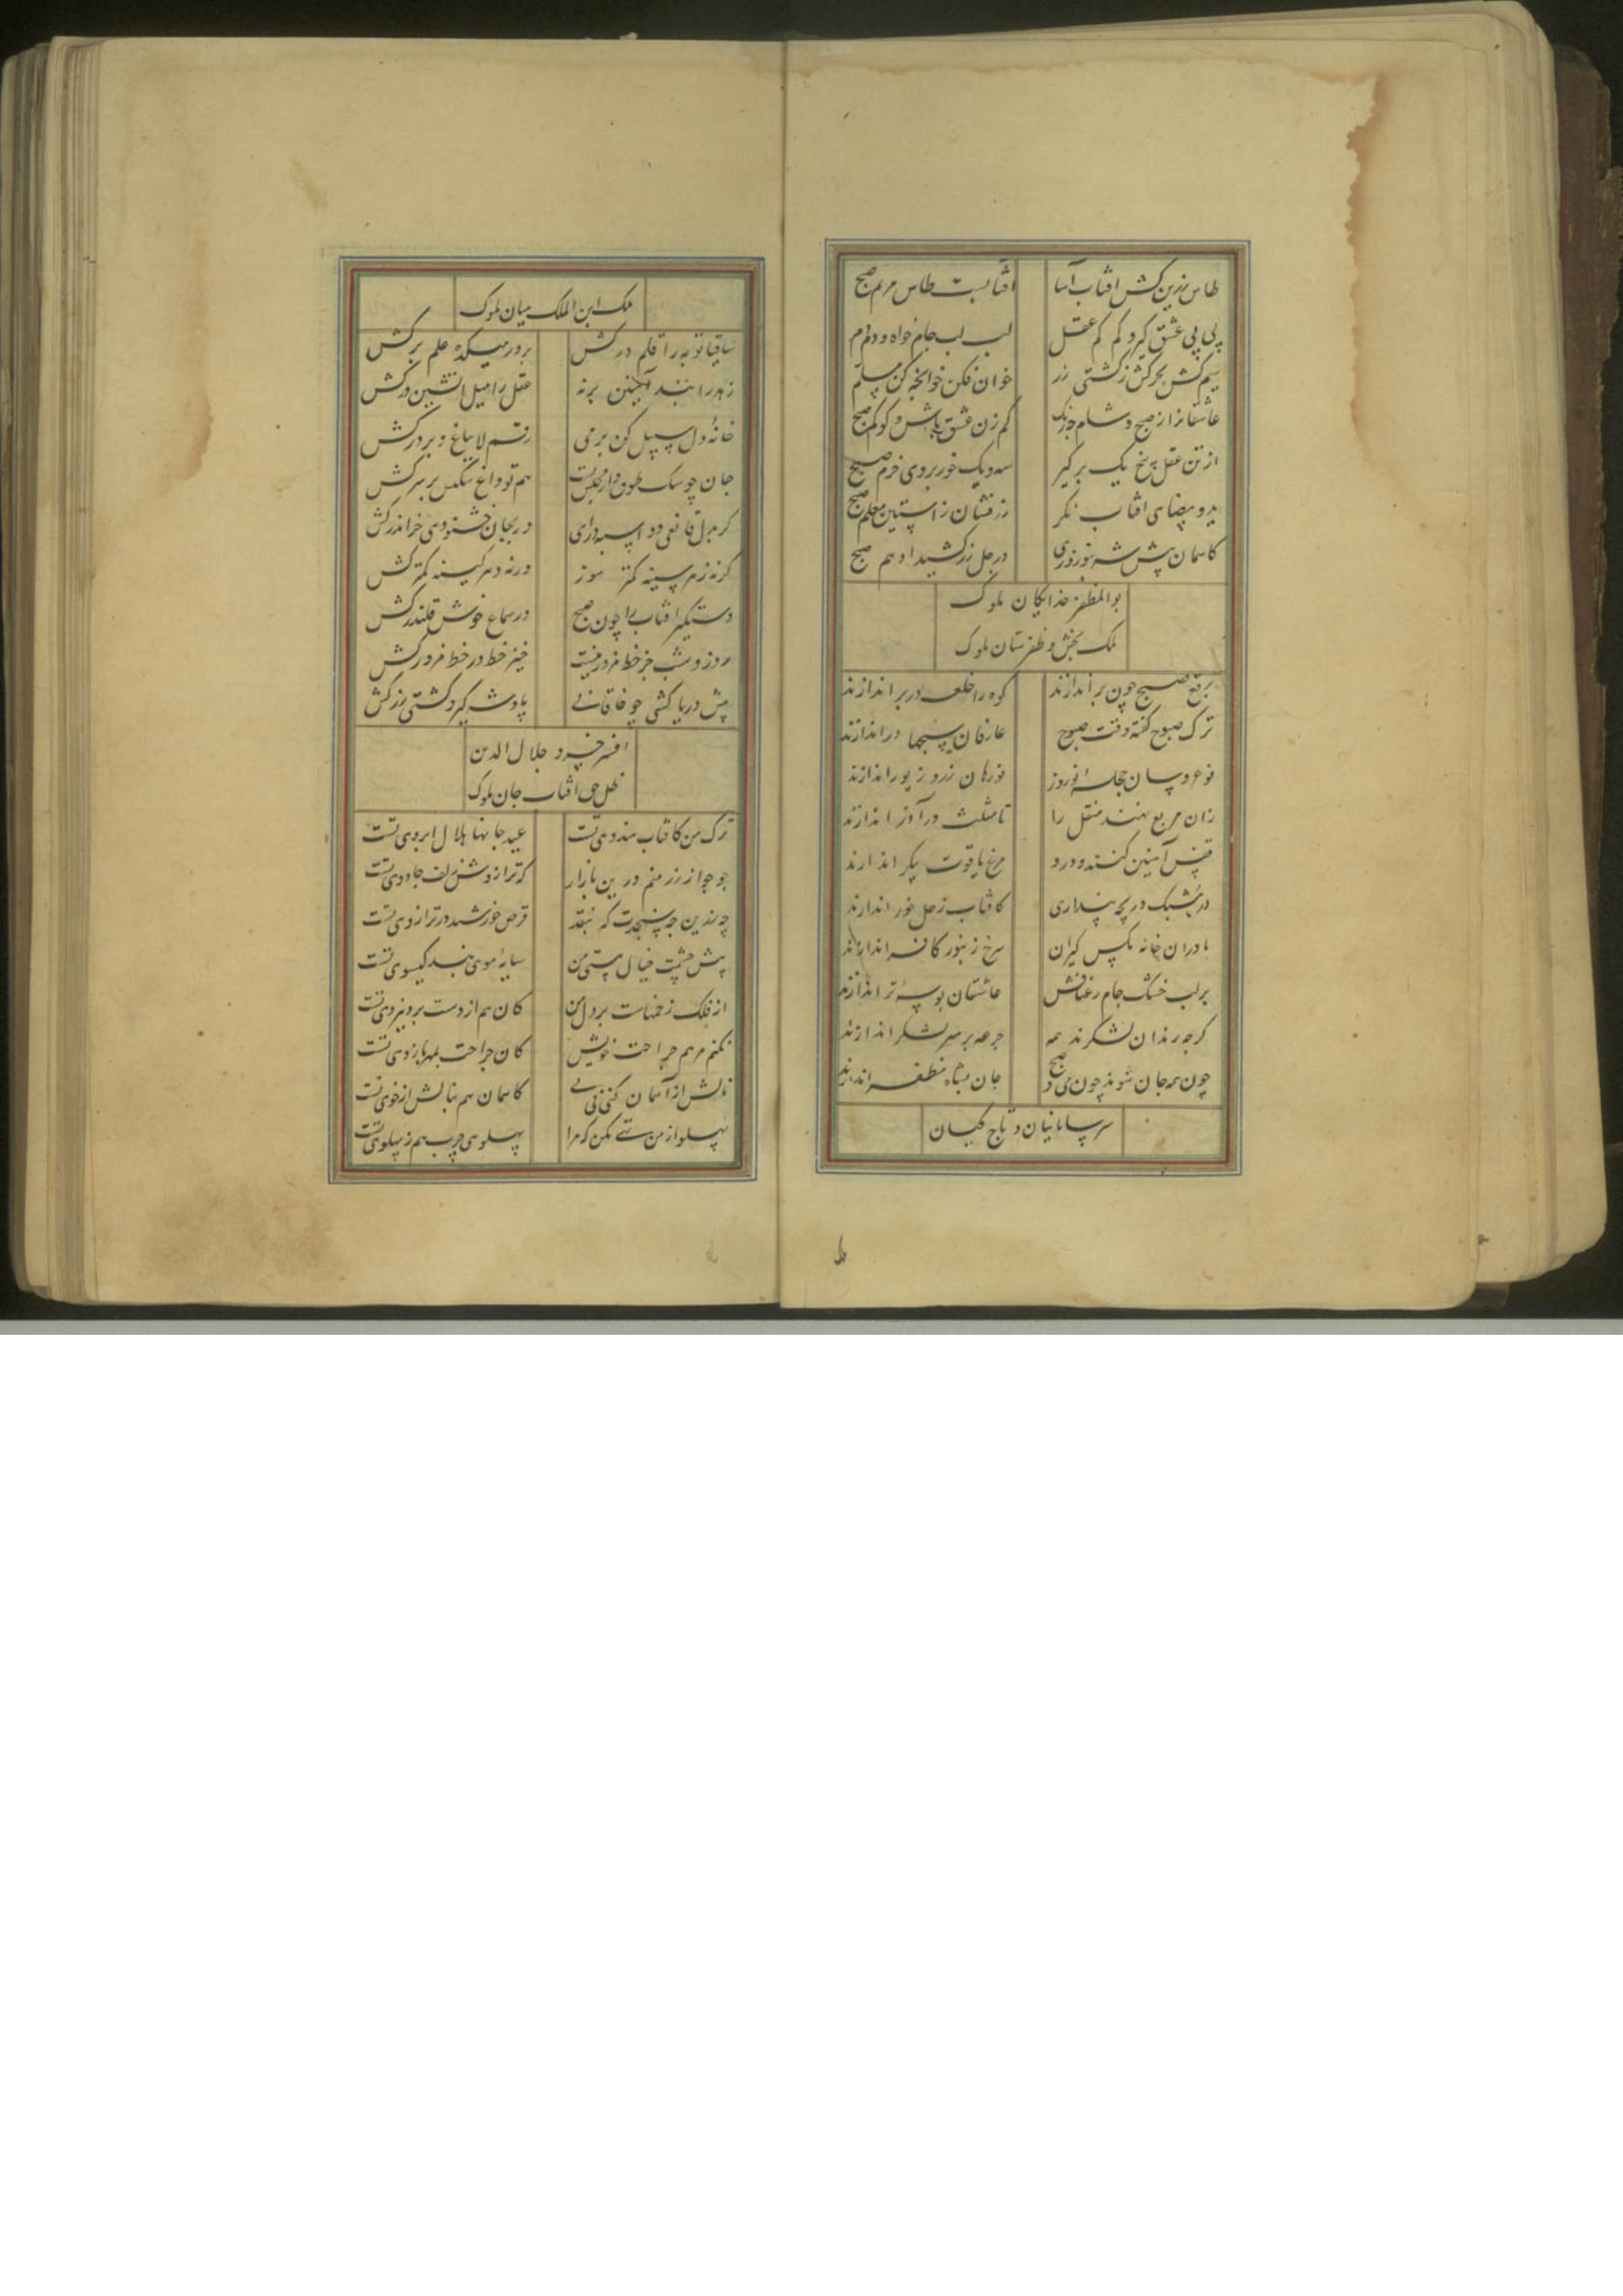 طاس زرین کش آفتاب آسا آفتابست طاس مرهم صبح
پی پی عشق گیر و کم کم عقل لب لب جام خواه و دم دم
سیم کش بحر کش ز کشتی زر خوان فکن خوانچه کن مسلم
عاشقانرا ز صبح و شام چه رنگ کم زن عشق باش و کو کم صبح
از تن عقل پنج یک برگیر سه و یک خور بروی خرم صبح
ید و بیضای افتاب نکر زرفشان ز آستین معلم صبح
کاسمان پیش شه بنوروزی در جل زر کشید ادهم صبح
بوالمظفر خدایکان ملوک
ملک بخش و ظفرستان ملوک
برقع صبح چون براندازند کوه را خلعه در بر اندازند
ترک صبوح گفته وقت صبوح عارفان سبحها در اندازند
نوعروسان حجله نوروز نورهان زر و زیور اندازند
زان مربع نهند منقل را تا مثلث در آذر اندازند
قفس آهنین کنند و درو مرغ یاقوت پیکر اندازند
در مشبک دریچه پنداری کافتاب زحل خور اندازند
یا دران خانه مکس گیران سرخ زنبور کافر اندازند
بر لب خشک جام رعناوش عاشقان بوسه تر اندازند
گرچه رندان لشکرند همه جرعه بر سر لشکر اندازند
چون همه جان شوند چون می و صبح جان بشاه مظفر اندازند
سر سامانیان و تاج کیان
ملک ابن الملک میان ملوک
ساقیا توبه را قلم درکش بر در میکده علم برکش
زهد را بند آهنین برنه عقل را میل آتشین درکش
خانه دل سبیل کن بر می رقم لا یباع بر در کش
جان چو سگ طوق دار مجلس تست هم تو داغ سگیش بر سر کش
گر بدل قانعی دو اسبه درای ور بجان خشنودی خر اندر کش
گر نه زهر سینه کمتر سوز ور نه دهر کینه کمتر کش
دستگیر افتاب را چون صبح در سماع خوش قلندر کش
روز و شب جز خط مزور نیست خیز خط در خط مزور کش
پیش دریا کشی چو خاقانی یاد شه گیر و کشتی زر کش
افسر خسرو جلال الدین
ظل حق آفتاب جان ملوک
ترک من کافتاب هندوی تست عید جانها هلال ابروی تست
جو جو از زر منم درین بازار که ترازوش زلف جادوی تست
چه زرین چه سنجدت که بنقد قرص خورشید در ترازوی تست
پیش چشمت خیال هستی من سایه موی بند گیسوی تست
از فلک زخمهاست بر دل من کان هم از دست برد نیروی تست
نکنم مرهم جراحت خویش کان جراحت بمهر بازوی تست
نالش از آسمان کنم نی نی کاسمان هم بنالش از خوی تست
پهلو از من تهی مکن که مرا پهلوی چرب هم ز پهلوی تست